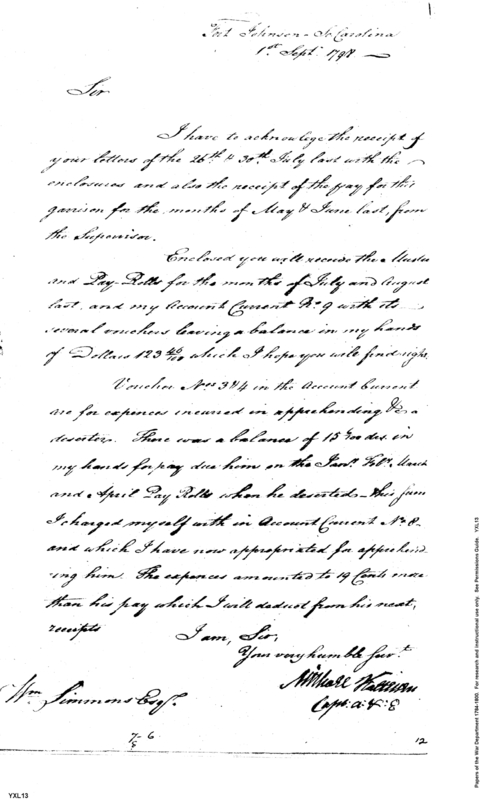 Fort Johnson - So Carolina
1st Sept. 1798
Sir
I have to acknowlege the receipt of
your letters of the 26th & 30th July last with the
enclosures and also the receipt of the pay for this
garrison for the months of May & June last, from
the Supervisor.
Enclosed you will receive the Muster
and Pay-Rolls for the months of July and August
last, and my Account Current No. 9 with its
several vouchers leaving a balance in my hands
of Dollars 123 which I hope you will find right.
Voucher Nos 3 & 4 in the Account Current
are for expences incurred in apprehending &c a
deserter. There was a balance of 15 dos. in
my hands for pay due him on the Jany. Feby. March
and April Pay Rolls when he deserted - this sum
I charged myself with in Account Current No. 8
and which I have now appropriated for apprehend
ing him. The expences amounted to 19 Cents more
than his pay which I will deduct from his next,
receipts
I am, Sir,
Your very humble Servt.
Michael Kalteisen
Capt. A: & E
Wm Simmons Esqr.
12
YXL13
Papers of the War Department 1784-1800. For research and instructional use only. See Permissions Guide. YXL13